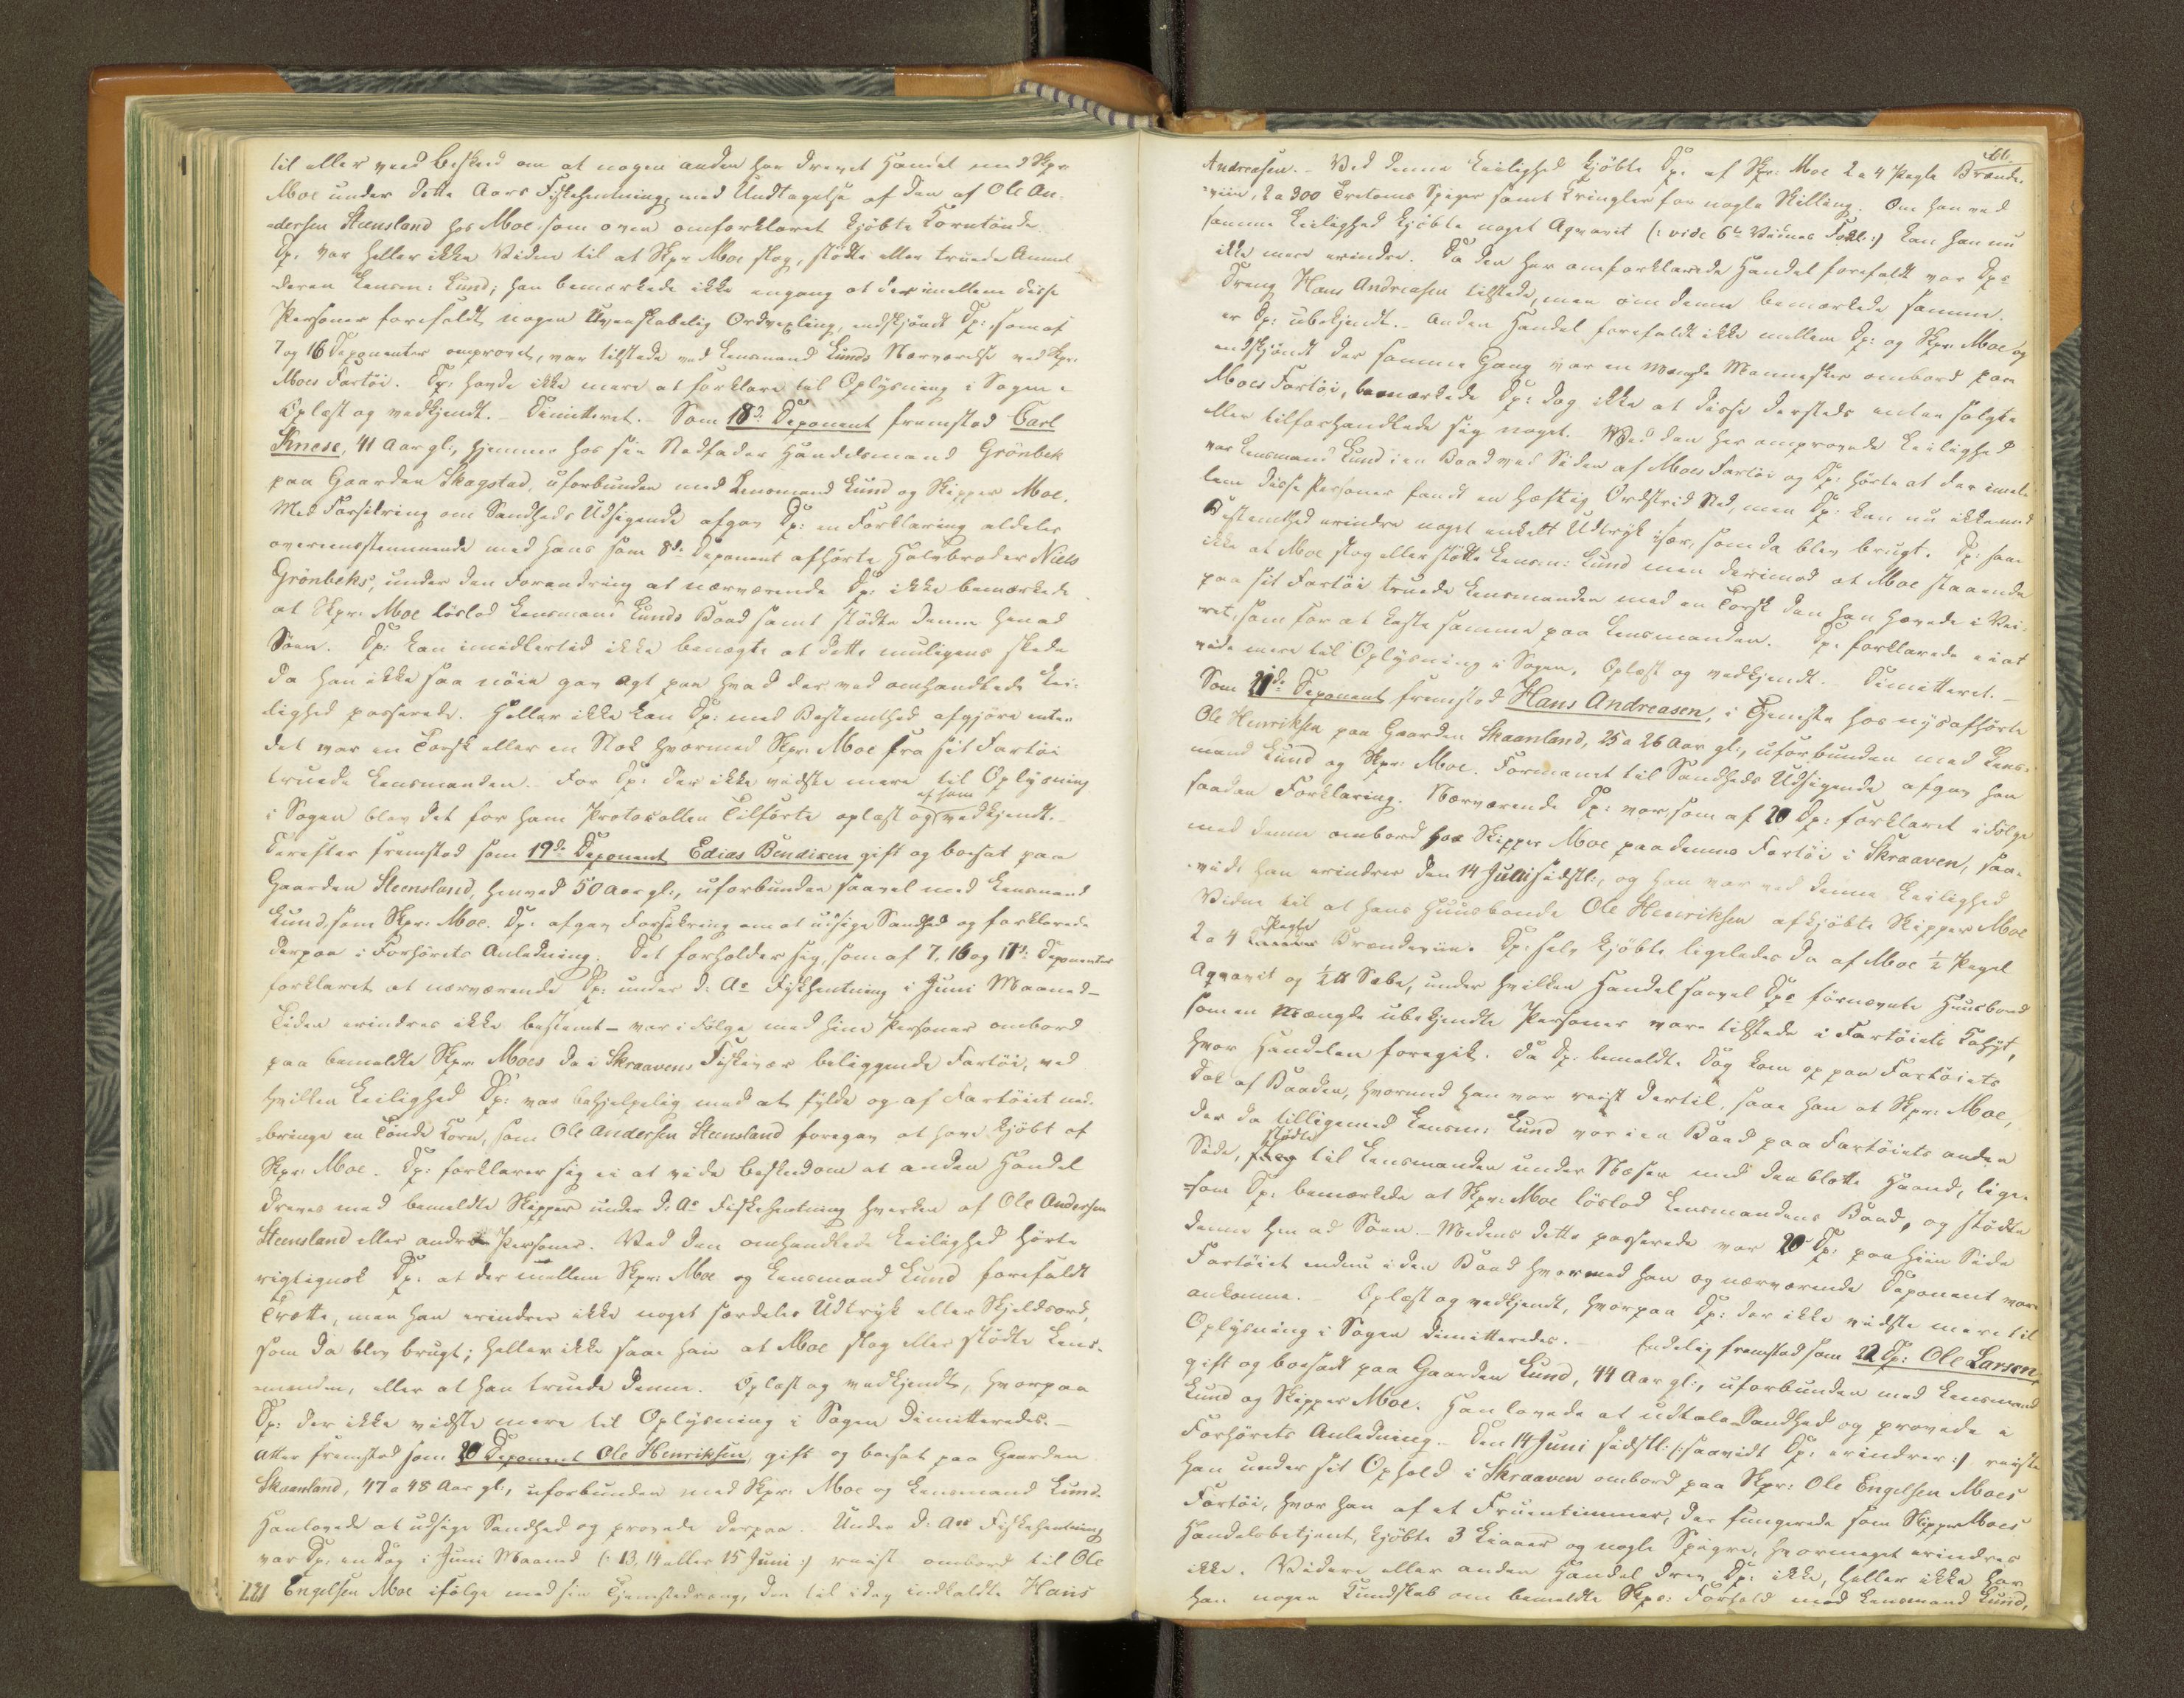 til eller veed beskeed om at nogen anden har drevet Handel med Skpr
Moe under dette Aars Fiskehentning, med Undtagelse af den af Ole An-
dersen Steensland hos Moe som oven omforklaret kjøbte Korntønde.
Dp. var heller ikke Vidne til at Skpr Moe slog, stødte eller truede Anmel-
deren Lensm: Lund; han bemærkede ikke engang at der imellem disse
Personer forefaldt nogen uvenskabelig Ordvexling, endskjöndt Dp:, som af
7 og 16 Deponenter omprovet, var tilstede ved Lensmand Lunds Nærværelse ved Skpr.
Moes Fartöi. Dp: havde ikke mere at forklare til Oplysning i Sagen
Oplæst og vedkjendt. Dimitteret. Som 18de Deponent fremstod Carl
Knese, 41 Aar gl:, hjemme hos sin Stedfader Handelsmand Grönbek
paa Gaarden Skagstad, uforbunden med Lensmand Lund og Skipper Moe.
Med Forsikring om Sandheds Udsigende afgav Dp: en Forklaring aldeles
overeensstemmende med hans som 8de Deponent afhörte Halvbroder Niels
Grönbeks, under den Forandring at nærværende Dp: ikke bemærkede
at Skpr. Moe löslod Lensmand Lunds Baad samt stödte denne hen ad
Söen. Dp: kan imidlertid ikke benægte at dette muligens skede
da han ikke saa nöie gav Agt paa hvad der ved omhandlede Lei-
lighed passerede. Heller ikke kan Dp: med Bestemthed afgjöre enten
det var en Torsk eller en Stok hvormed Skpr. Moe fra sit Fartöi
truede Lensmanden. For Dp: der ikke vidste mere til Oplysning
i Sagen blev det for ham Protocollen Tilförte oplæst og af ham vedkjendt.
Derefter fremstod som 19de Deponent Edias Bendixen gift og boesat paa
Gaarden Steensland, henved 50 Aar gl:, uforbunden saavel med Lensmand
Lund, som Skpr. Moe. Dp. afgav Forsikring om at udsige Sandhed og forklarede
derpaa i Forhörets Anledning. Det forholder sig, som af 7, 16 og 17de Deponenter
forklaret at nærværende Dp: under d: As Fiskhentning i Juni Maaned -
Tiden erindres ikke bestemt - var i Fölge med hine Personer ombord
paa bemeldte Skpr Moes da i Skraavens Fiskevær beliggende Fartöi, ved
hvilken Leilighed Dp: var behjelpelig med at fylde og af Fartöiet ned-
bringe en Tönde Korn, som Ole Andersen Steensland foregav at have kjöbt af
Skpr: Moe. Dp: forklarer sig ei at vide beskedom at anden Handel
dreves med bemeldte Skipper under d: As Fiskehentning hverken af Ole Andersen
Steensland eller andre Personer. Ved den omhandlede Leilighed hörte
rigtignok Dp: at der mellem Skpr: Moe og Lensmand Lund forefaldt
Trætte, men han erindrer ikke noget særdeles Udtryk eller Skjeldsord,
som da blev brugt; heller ikke saae han at Moe slog eller stödte Lens-
manden, eller at han truede denne. Oplæst og vedkjendt, hvorpaa
Dp: der ikke vidste mere til Oplysning i Sagen dimitteredes.
Atter fremstod som 20 Deponent Ole Henriksen, gift og boesat paa Gaarden
Skaanland, 47 a 48 Aar gl:, uforbunden med Skpr. Moe og Lensmand Lund.
Han lovede at udsige Sandhed og provede derpaa. Under d: As Fiskehentning
var Dp: en Dag i Juni Maaned (: 13, 14 eller 15 Juni :) reist ombord til Ole
Engelsen Moe ifölge med sin Tjenestedreng, den til idag indkaldte Hans
Andreasen. Ved denne Leilighed kjöbte Dp. af Skpr: Moe 2 a 4 Pægle Brænde-
viin, 2 a 300 Tretoms Spiger samt Kringler for nogle Skilling. Om han ved
samme Leilighed kjöbte noget Aqvavit (: vide 6te Vidnes Forkl: :) kan han nu
ikke mere erindre. Da den her omforklarede Handel forefaldt var Dps
Dreng Hans Andreasen tilstede, men om denne bemærkede samme.
er Dp: ubekjendt. Anden Handel forefaldt ikke mellem Dp: og Skpr. Moe og
endskjöndt der samme Gang var en Mængde Mennesker ombord paa
Moes Fartöi, bemærkede Dp: dog ikke at disse dersteds enten solgte
eller tilforhandlede sig noget. Ved den her omprovede Leilighed
var Lensmand Lund i en Baad ved Siden af Moes Fartöi og Dp: hörte at der imel-
lem disse Personer fandt en hæftig Ordstrid Sted, men Dp: kan nu ikke med
Bestemthed erindre noget enkelt Udtryk især, som da blev brugt. Dp: saae
ikke at Moe slog eller stötte Lensm: Lund men derimod at Moe staaende
paa sit Fartöi truede Lensmanden med en Torsk den han hævede i Vei-
ret, som for at kaste samme paa Lensmanden. Dp. forklarede ei at
vide mere til Oplysning i Sagen. Oplæst og vedkjendt. Dimitteret.
Som 21de Deponent fremstod Hans Andreasen, i Tjeneste hos nysafhörte
Ole Henriksen paa Gaarden Skaanland, 25 a 26 Aar gl:, uforbunden med Lens-
mand Lund og Skpr: Moe. Formanet til Sandheds Udsigende afgav han
saadan Forklaring. Nærværende Dp: var, som af 20 Dp: forklaret i Fölge
med denne ombord hos Skipper Moe paa dennes Fartöi i Skraaven, saa-
vidt han erindrer den 14 Juni sidstl:, og han var ved denne Leilighed
Vidne til at hans Huusbonde Ole Henriksen afkjöbte Skipper Moe
2 a 4 Pægle Brændeviin. Dp: selv kjöbte ligeledes da af Moe ½ Pægel
Aqvavit og ½ ℔ Sæbe, under hvilken Handel saavel Dps förnævnte Huusbond
som en Mængde ubekjendte Personer vare tilstede i Fartöiets Kahyt,
hvor Handelen foregik. Da Dp: bemeldte Dag kom op paa Fartöiets
Dæk af Baaden, hvormed han var reist dertil, saae han at Skpr: Moe,
der da tilligemed Lensm: Lund var i en Baad paa Fartöiets anden
Side, stödte til Lensmanden under Næsen med den blotte Haand, lige-
som Dp: bemærkede at Skpr: Moe löslod Lensmandens Baad, og stödte
denne hen ad Söen. Medens dette passerede var 20 Dp: paa hiin Side
Fartöiet endnu i den Baad hvormed han og nærværende Deponent vare
ankomne. Oplæst og vedkjendt, hvorpaa Dp: der ikke vidste mere til
Oplysning i Sagen dimitteredes. Endelig fremstod som 22 Dp: Ole Larsen,
gift og boesadt paa Gaarden Lund, 44 Aar gl:, uforbunden med Lensmand
Lund og Skipper Moe. Han lovede at udtale Sandhed og provede i
Forhörets Anledning. Den 14 Juni sidstl: (: saavidt Dp: erindrer :) reiste
han under sit Ophold i Skraaven ombord paa Skpr: Ole Engelsen Moes
Fartöi, hvor han af et Fruentimmer, der fungerede som Skipper Moes
Handelsbetjent, kjöbte 3 Liaaer og nogle Spigre, hvormeget erindres
ikke. Videre eller anden Handel drev Dp: ikke, heller ikke har
han nogen Kundskab om bemeldte Skprs: Forhold med Lensmand Lund,